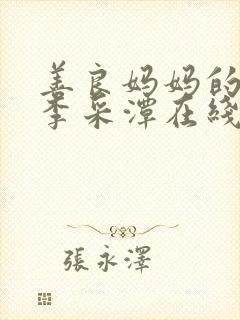 善良妈妈的
李采潭在线
張永澤